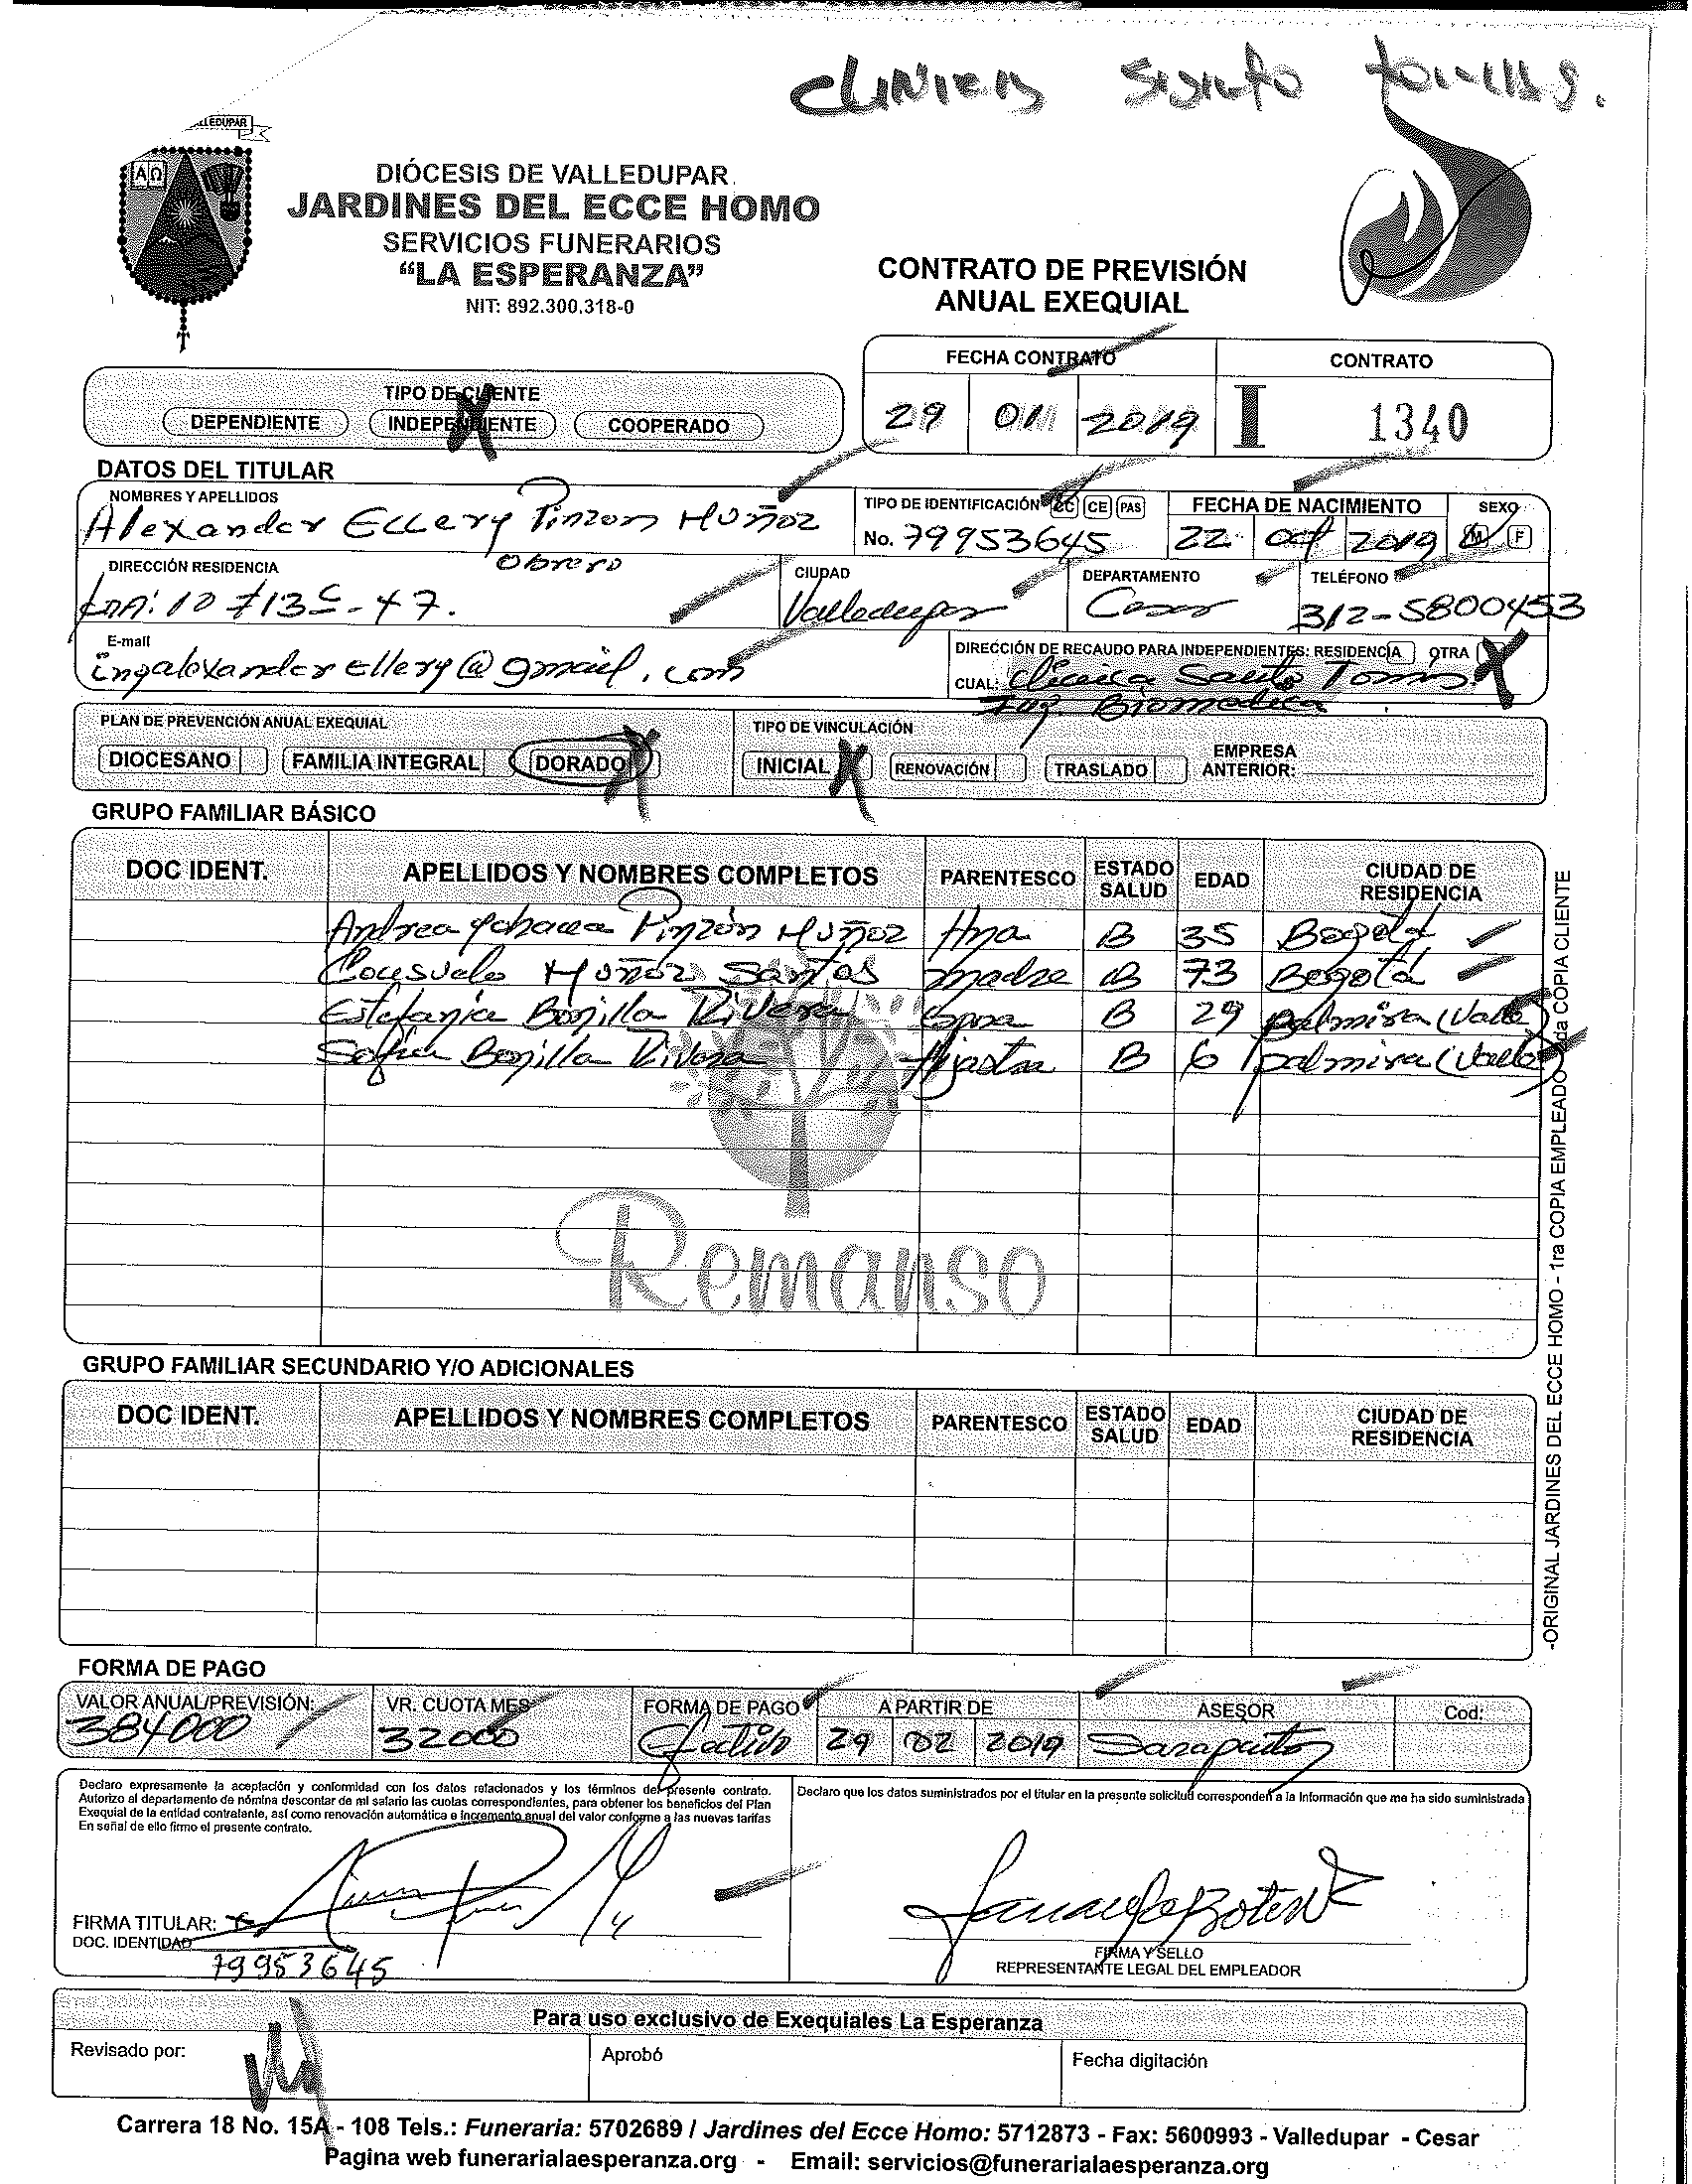 CLINICA Santo Tomas.
ALLEDUPAR
Α Ω
DIÓCESIS DE VALLEDUPAR
JARDINES DEL ECCE HOMO
SERVICIOS FUNERARIOS
“LA ESPERANZA”
NIT: 892.300.318-0
CONTRATO DE PREVISIÓN
ANUAL EXEQUIAL
FECHA CONTRATO CONTRATO
29 01 2019 I 1340
TIPO DE CLIENTE
DEPENDIENTE INDEPENDIENTE X COOPERADO
DATOS DEL TITULAR
NOMBRES Y APELLIDOS TIPO DE IDENTIFICACIÓN CC CE PAS FECHA DE NACIMIENTO SEXO
Alexander Ellery Pinzon Muñoz No. 79953645 22 oct 2019 M F
DIRECCIÓN RESIDENCIA Obrero CIUDAD DEPARTAMENTO TELÉFONO
CRA: 10 #13C-47. Valledupar Cesar 312-5800453
E-mail DIRECCIÓN DE RECAUDO PARA INDEPENDIENTES: RESIDENCIA OTRA X
ingalexanderellery@gmail.com CUAL: Clinica Santo Tomas
Ing. Biomedica
PLAN DE PREVENCIÓN ANUAL EXEQUIAL TIPO DE VINCULACIÓN
DIOCESANO FAMILIA INTEGRAL DORADO X INICIAL X RENOVACIÓN TRASLADO EMPRESA ANTERIOR:
GRUPO FAMILIAR BÁSICO
DOC IDENT. APELLIDOS Y NOMBRES COMPLETOS PARENTESCO ESTADO SALUD EDAD CIUDAD DE RESIDENCIA
Andrea Pinzón Muñoz Hna B 35 Bogotá
Consuelo Muñoz Santos madre B 73 Bogotá
Estefania Bonilla Rivera Esposa B 29 palmira (Valle)
Sofia Bonilla Rivera Hijastra B 6 palmira (Valle)
Remanso
GRUPO FAMILIAR SECUNDARIO Y/O ADICIONALES
DOC IDENT. APELLIDOS Y NOMBRES COMPLETOS PARENTESCO ESTADO SALUD EDAD CIUDAD DE RESIDENCIA
-ORIGINAL JARDINES DEL ECCE HOMO - 1ra COPIA EMPLEADO 2da COPIA CLIENTE
FORMA DE PAGO
VALOR ANUAL/PREVISIÓN: VR. CUOTA MES FORMA DE PAGO A PARTIR DE ASESOR Cod:
384000 32000 Efectivo 29 02 2019
Declaro expresamente la aceptación y conformidad con los datos relacionados y los términos del presente contrato.
Autorizo al departamento de nómina descontar de mi salario las cuotas correspondientes, para obtener los beneficios del Plan
Exequial de la entidad contratante, así como renovación automática e incremento anual del valor conforme a las nuevas tarifas
En señal de ello firmo el presente contrato.
Declaro que los datos suministrados por el titular en la presente solicitud corresponden a la información que me ha sido suministrada
FIRMA TITULAR:
DOC. IDENTIDAD
79953645
FIRMA Y SELLO
REPRESENTANTE LEGAL DEL EMPLEADOR
Para uso exclusivo de Exequiales La Esperanza
Revisado por: Aprobó Fecha digitación
Carrera 18 No. 15A - 108 Tels.: Funeraria: 5702689 / Jardines del Ecce Homo: 5712873 - Fax: 5600993 - Valledupar - Cesar
Pagina web funerarialaesperanza.org - Email: servicios@funerarialaesperanza.org